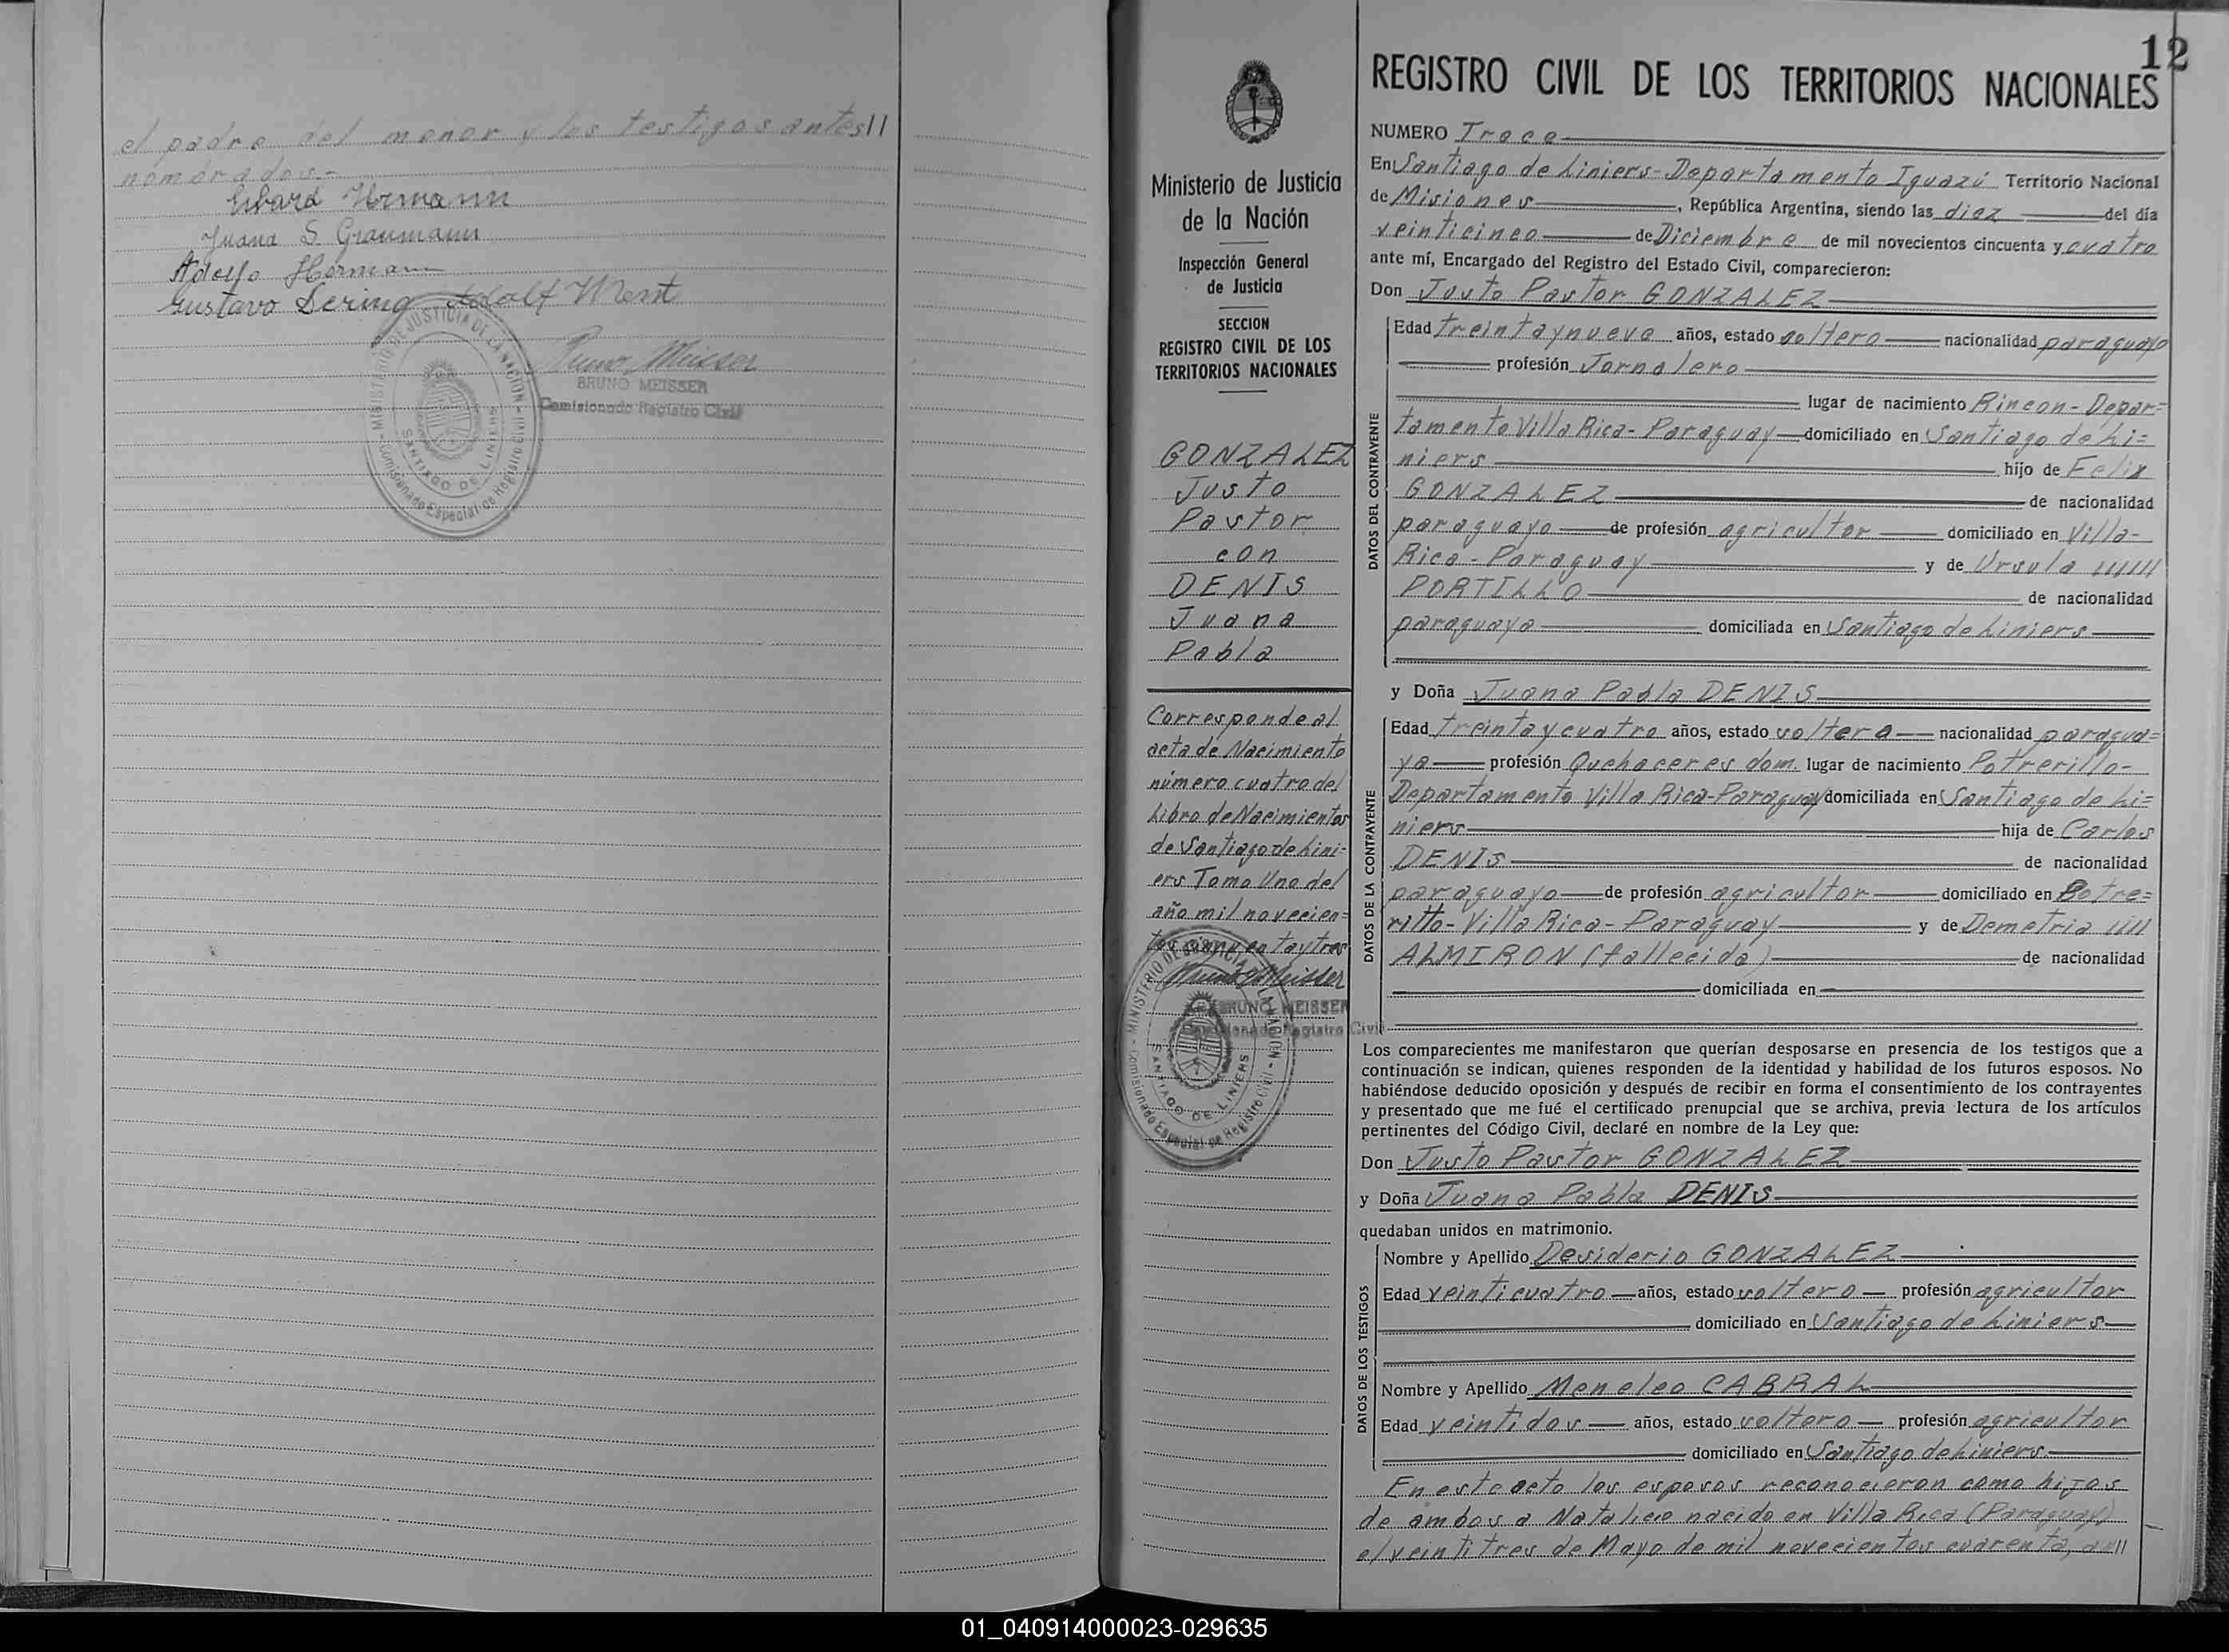 el padre del menor y los testigos antes//
nombrados.-
Juana S. Graumann
Adolfo Hormann
Gustavo Dering
MINISTERIO DE JUSTICIA DE LA NACION
Comisionado Especial de Registro Civil
SANTIAGO DE LINIERS
Bruno Meisser
BRUNO MEISSER
Comisionado Registro Civil
12
Ministerio de Justicia
de la Nación
Inspección General
de Justicia
SECCION
REGISTRO CIVIL DE LOS
TERRITORIOS NACIONALES
GONZALEZ
Justo
Pastor
con
DENIS
Juana
Pabla
Corresponde al
acta de Nacimiento
número cuatro del
Libro de Nacimientos
de Santiago de Lini-
ers Tomo Uno del
año mil novecien=
tos cincuentaytres
Bruno Meisser
BRUNO MEISSER
Comisionado Registro Civil
MINISTERIO DE JUSTICIA DE LA NACION
Comisionado Especial de Registro Civil
SANTIAGO DE LINIERS
REGISTRO CIVIL DE LOS TERRITORIOS NACIONALES
NUMERO Trece
En Santiago de Liniers-Departamento Iguazú Territorio Nacional
de Misiones, República Argentina, siendo las diez del día
veinticinco de Diciembre de mil novecientos cincuenta y cuatro
ante mí, Encargado del Registro del Estado Civil, comparecieron:
Don Justo Pastor GONZALEZ
DATOS DEL CONTRAYENTE
Edad treintaynueve años, estado soltero nacionalidad paraguayo
profesión Jornalero
lugar de nacimiento Rincon-Depar=
tamento Villa Rica-Paraguay domiciliado en Santiago de Li=
niers hijo de Felix
GONZALEZ de nacionalidad
paraguayo de profesión agricultor domiciliado en Villa-
Rica-Paraguay y de Ursula //////
PORTILLO de nacionalidad
paraguaya domiciliada en Santiago de Liniers
y Doña Juana Pabla DENIS
DATOS DE LA CONTRAYENTE
Edad treintaycuatro años, estado soltera nacionalidad paragua=
ya profesión Quehaceres dom. lugar de nacimiento Potrerillo-
Departamento Villa Rica-Paraguay domiciliada en Santiago de Li=
niers hija de Carlos
DENIS de nacionalidad
paraguayo de profesión agricultor domiciliado en Potre=
rillo-Villa Rica-Paraguay y de Demetria ////
ALMIRON (fallecida) de nacionalidad
domiciliada en
Los comparecientes me manifestaron que querían desposarse en presencia de los testigos que a
continuación se indican, quienes responden de la identidad y habilidad de los futuros esposos. No
habiéndose deducido oposición y después de recibir en forma el consentimiento de los contrayentes
y presentado que me fué el certificado prenupcial que se archiva, previa lectura de los artículos
pertinentes del Código Civil, declaré en nombre de la Ley que:
Don Justo Pastor GONZALEZ
y Doña Juana Pabla DENIS
quedaban unidos en matrimonio.
DATOS DE LOS TESTIGOS
Nombre y Apellido Desiderio GONZALEZ
Edad veinticuatro años, estado soltero profesión agricultor
domiciliado en Santiago de Liniers
Nombre y Apellido Meneleo CABRAL
Edad veintidos años, estado soltero profesión agricultor
domiciliado en Santiago de Liniers
En este acto los esposos reconocieron como hijos
de ambos a Natalicio nacido en Villa Rica (Paraguay)
el veintitres de Mayo de mil novecientos cuarenta, a//
01_040914000023-029635